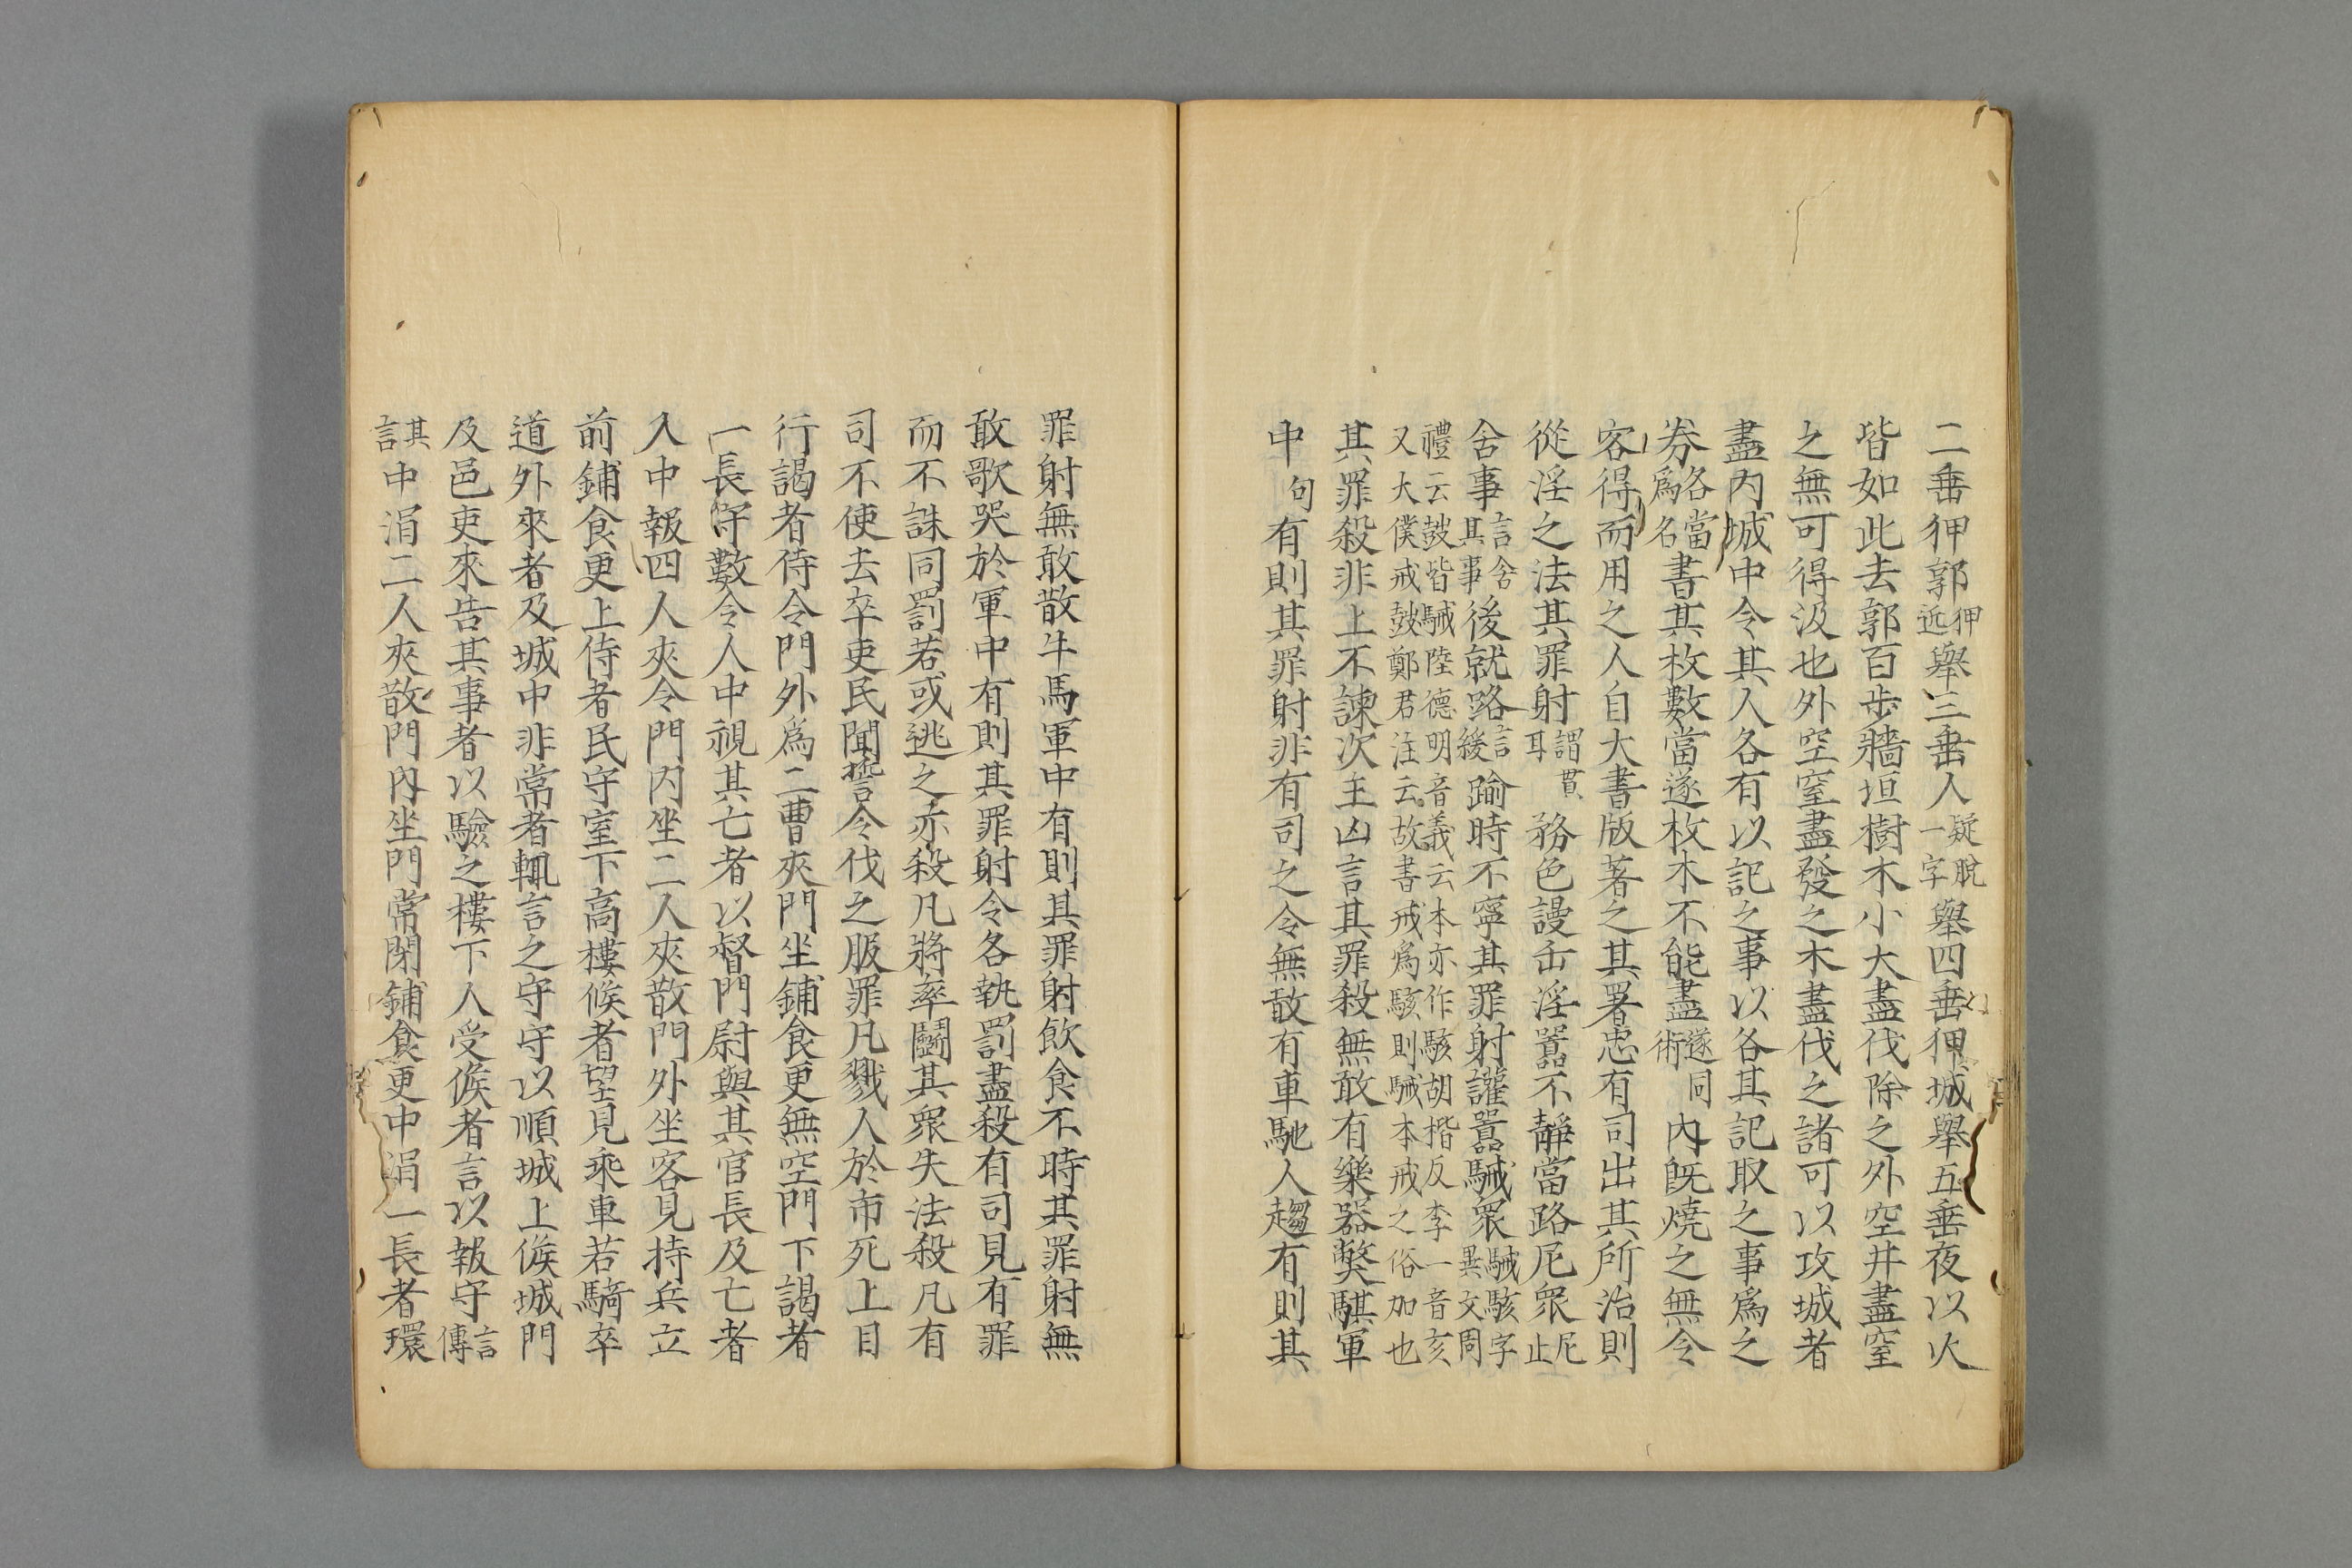 二垂狎郭狎近舉三垂人疑脫一字舉四垂狎城舉五垂夜以火
皆如此去郭百步牆垣樹木小大盡伐除之外空井盡窒
之無可得汲也外空窒盡發之木盡伐之諸可以攻城者
盡內城中令其人各有以記之事以各其記取之事爲之
券各當爲名書其枚數當遂枚木不能盡遂同術內旣燒之無令
客得而用之人自大書版著之其署忠有司出其所治則
從淫之法其罪射謂貫耳務色謾𦈢淫囂不靜當路尼眾尼止
舍事言舍其事後就路言緩踰時不寧其罪射讙囂駴眾駴駭字異文周
禮云鼓皆駴陸德明音義云本亦作駭胡楷反李一音亥
又大僕戒鼓鄭君注云故書戒爲駭則駴本戒之俗加也
其罪殺非上不諫次主凶言其罪殺無敢有樂器獘騏軍
中句有則其罪射非有司之令無敢有車馳人趨有則其
罪射無敢散牛馬軍中有則其罪射飲食不時其罪射無
敢歌哭於軍中有則其罪射令各執罰盡殺有司見有罪
而不誅同罰若或逃之亦殺凡將率鬭其眾失法殺凡有
司不使去卒吏民聞誓令伐之服罪凡戮人於市死上目
行謁者侍令門外爲二曹夾門坐鋪食更無空門下謁者
一長守數令人中視其亡者以督門尉與其官長及亡者
入中報四人夾令門內坐二人夾散門外坐客見持兵立
前鋪食更上侍者民守室下高樓候者望見乘車若騎卒
道外來者及城中非常者輒言之守守以順城上候城門
及邑吏來告其事者以驗之樓下人受候者言以報守言傳
其言中涓二人夾散門內坐門常閉鋪食更中涓一長者環